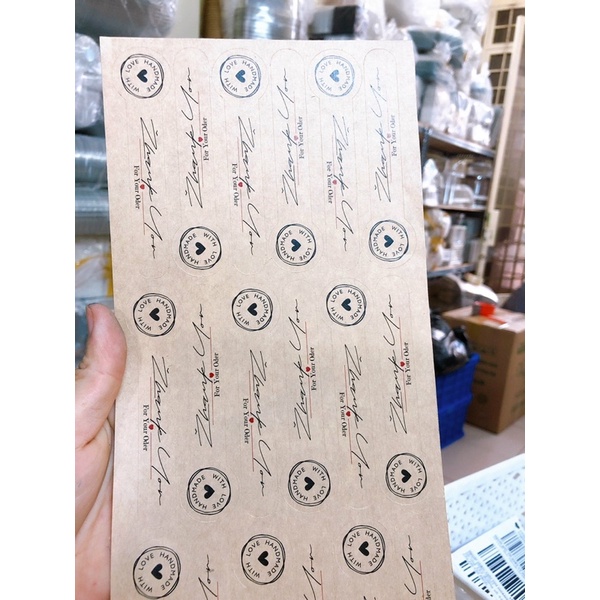 HANDMADE WITH LOVE
Thank You
For Your Oder
HANDMADE WITH LOVE
Thank You
For Your Oder
HANDMADE WITH LOVE
Thank You
For Your Oder
HANDMADE WITH LOVE
Thank You
For Your Oder
HANDMADE WITH LOVE
Thank You
For Your Oder
HANDMADE WITH LOVE
Thank You
For Your Oder
HANDMADE WITH LOVE
Thank You
For Your Oder
HANDMADE WITH LOVE
Thank You
For Your Oder
HANDMADE WITH LOVE
Thank You
For Your Oder
HANDMADE WITH LOVE
Thank You
For Your Oder
HANDMADE WITH LOVE
Thank You
For Your Oder
HANDMADE WITH LOVE
Thank You
For Your Oder
HANDMADE WITH LOVE
You
HANDMADE WITH LOVE
You
HANDMADE WITH LOVE
You